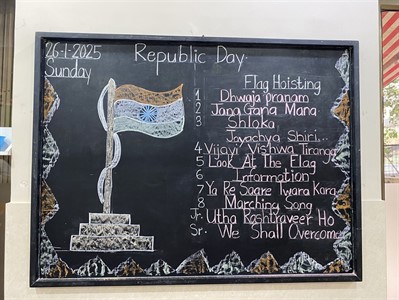 26-1-2025
Sunday
Republic Day.
Flag Hoisting
1 Dhwaja pranam
2 Jana Gana Mana
3 Shloka
Jayachya Shiri...
4 Vijayi Vishwa Tiranga
5 Look At The Flag
6 Information
7 Ya Re Saare Iwara Kara
8 Marching Song
Jr. Utha Rashtraveer Ho
Sr. We Shall Overcome